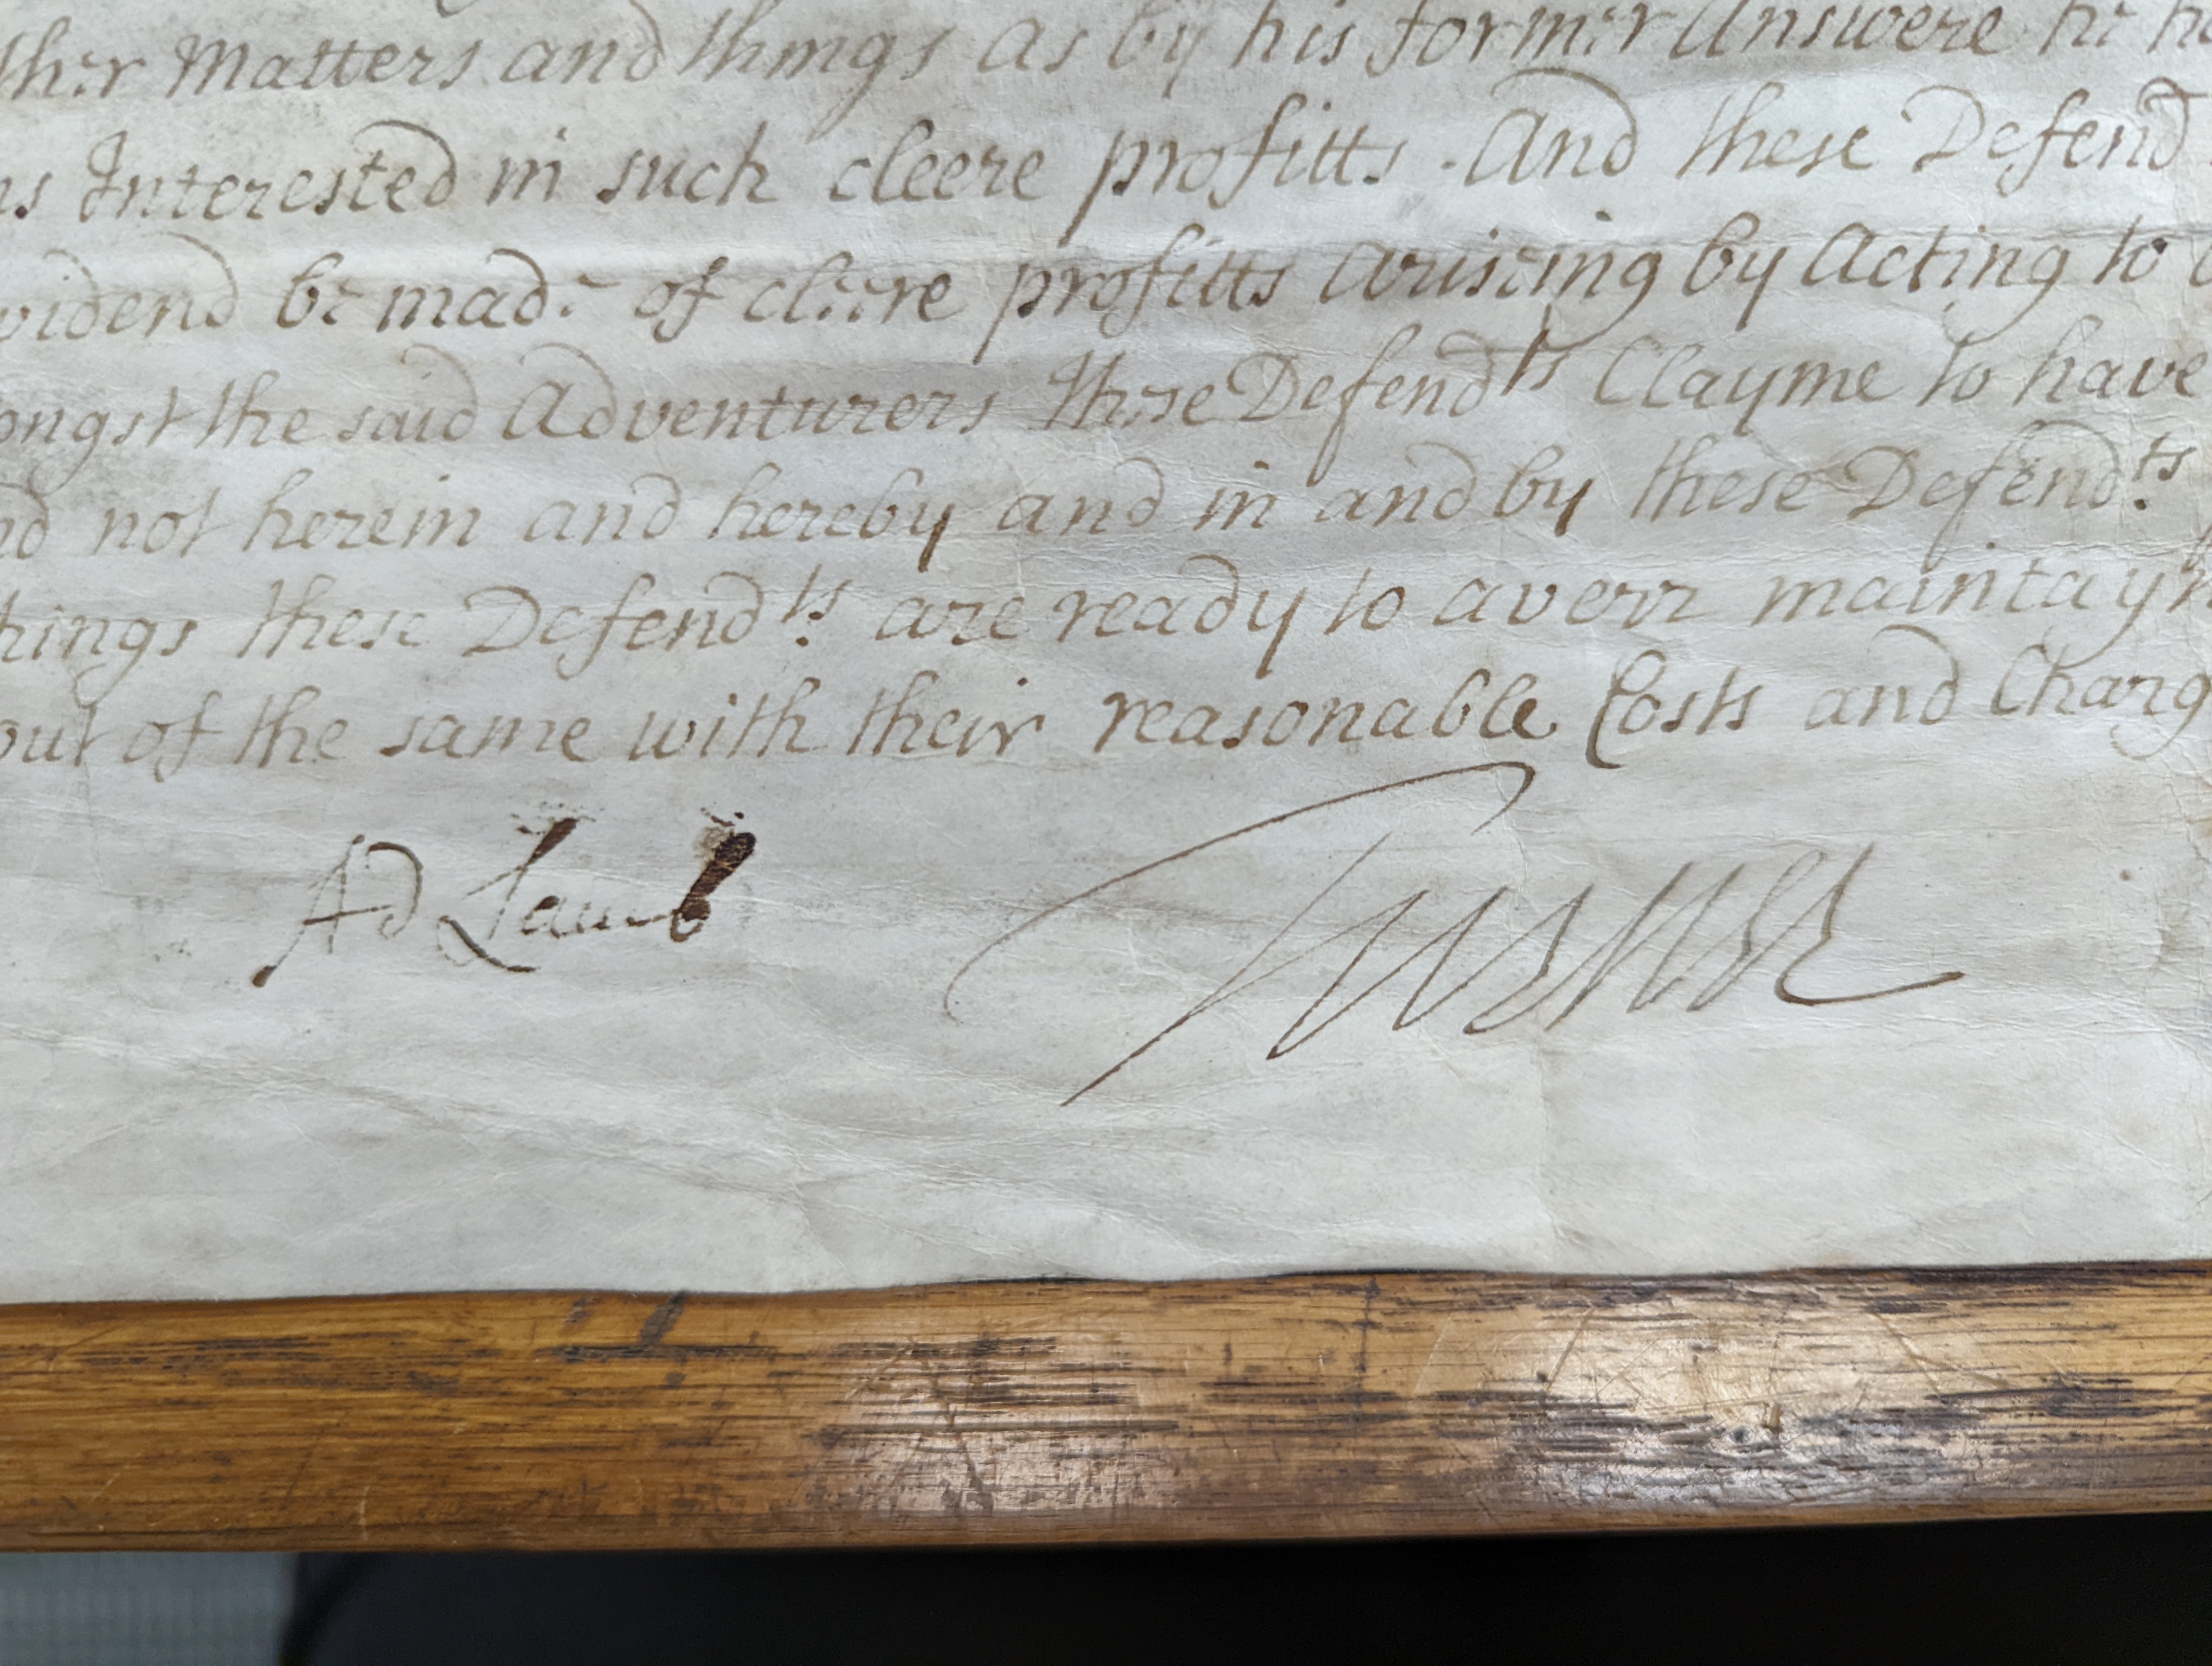 ther Matters and things as by his former Answere he
Interested in such cleere profitts. And these Defend
vidend be made of cleere profitts ariseing by Acting to
ongst the said Adventurers these Defendts Clayme to have
nd not herein and hereby and in and by these Defendts
things these Defendts are ready to averr maintayn
out of the same with their reasonable Costs and Charg
Ad Lamb